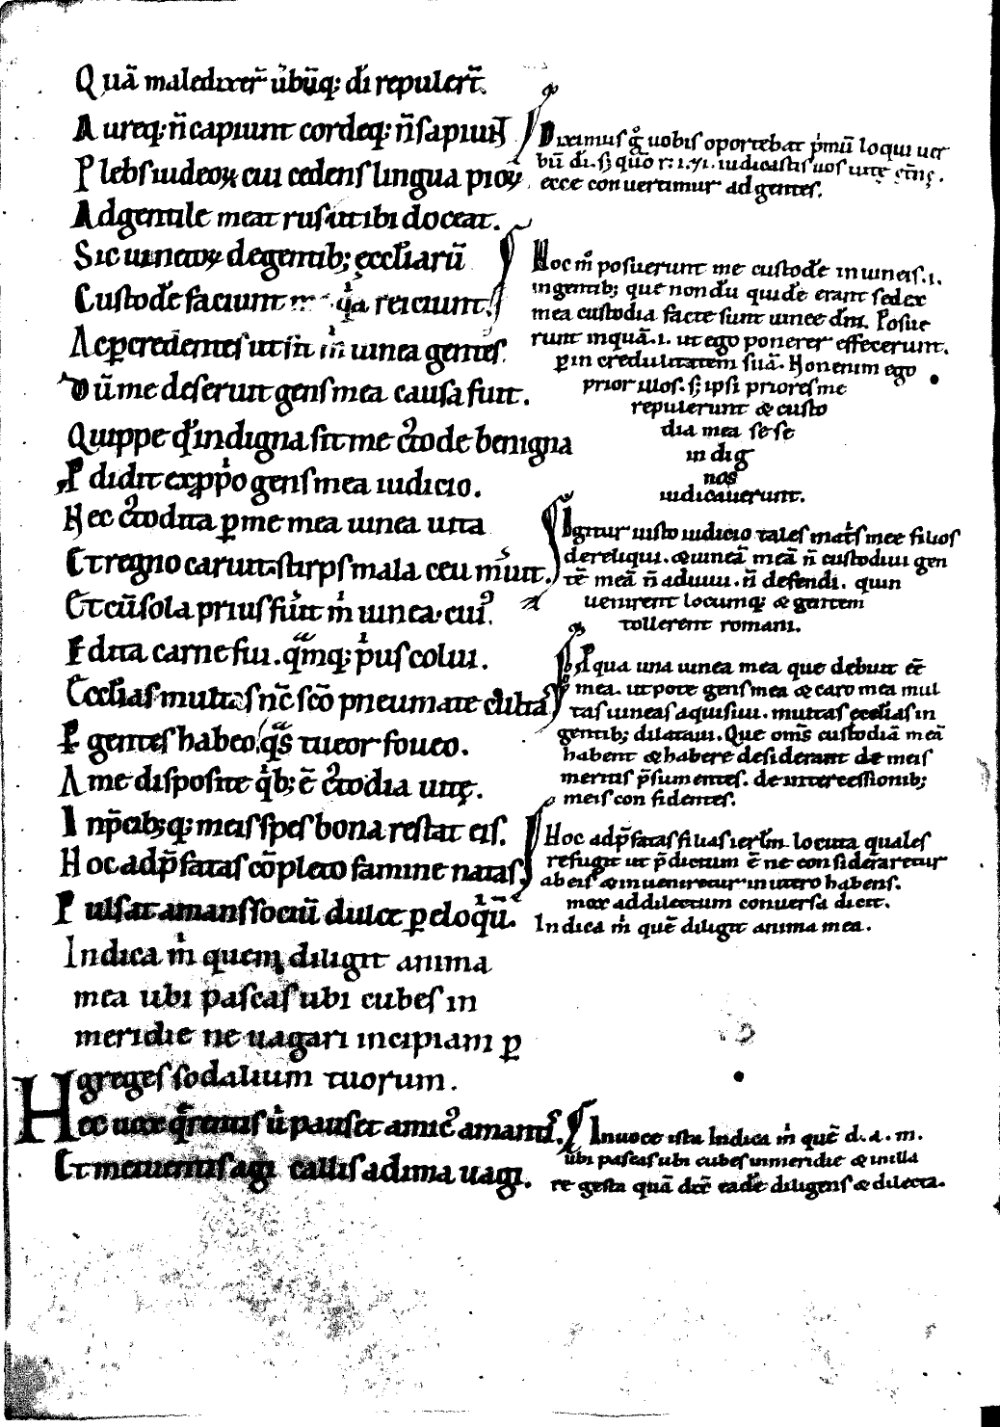 Quā maledixer̄ ūbūq; dī repulert̄.
Aureq; n̄ capiunt cordeq; n̄ sapiunt
Plebs iudeoꝝ cui cedens lingua pioꝝ
Ad gentile meat rursus tibi doceat.
Sic uineaꝝ de gentib; ęccl̄iarū
Custodē faciunt reiciunt.
Ac ꝑ credentes ut sin uinea gentes.
Dū me deseruit gens mea causa fuit.
Quippe qd̄ indigna sit me c̄tode benigna
Pdidit ex ꝓpo gens mea iudicio.
Hec c̄todita ꝑ me mea uinea uita
Et regno caruit stirps mala ceu m̄uit.
Et cū sola prius fūit m̄ uinea cui⁹
Edita carne fui. q̄mq; p̄us colui.
Ecclīas multas nc̄ sc̄o pneumate
E gentes habeo q̄s tueor foueo.
A me disposite q̄b; ē c̄todia uitę.
In p̄cib; q; meis spes bona restat eis.
Hoc ad p̄fatas cōpleto famine natas
Pulsat amans sociū dulce ꝑ eloq̄ū.
Indica m̄ quem diligit anima
mea ubi pascas ubi cubes in
meridie ne uagari incipiam ꝑ
greges sodalium tuorum.
Hec uox q̄rentis ū pauset amic⁹ amantis.
Et me uagi callis adima uagi.
Diximus g̊ uobis oportebat p̄mū loqui uer
bū dī. sꝫ quō iudicastis uos uitę ęt̄nę.
ecce conuertimur ad gentes.
Hoc m̊ posuerunt me custodē in uineis .i.
in gentib; que nondū quidē erant sed ex
mea custodia facte sunt uinee dn̄i. Posue
runt inquā .i. ut ego ponerer effecerunt.
ꝑ in credulitatem suā. Non enim ego
prior illos. sꝫ ipsi priores me
repulerunt & custo
dia mea se se
in dig
nos
iudicauerunt.
Igitur iusto iudicio tales mat̄s mee filios
dereliqui. & uineā meā n̄ custodiui gen
tē meā n̄ adiuui. n̄ defendi. quin
uenirent locumq; & gentem
tollerent romani.
A qua una uinea mea que debuit eē
mea. ut pote gens mea & caro mea mul
tas uineas aquisiui. multas ecclīas in
gentib; dilataui. Que om̄s custodiā meā
habent & habere desiderant de meis
meritis p̄sumentes. de intercessionib;
meis confidentes.
Hoc ad p̄fatas filias ierl̄m locuta quales
refugit ut p̄dictum ē ne consideraretur
ab eis & inueniretur in utero habens.
mox ad dilectum conuersa dicit.
Indica m̄ quē diligit anima mea.
In uoce ista Indica m̄ quē d. a. m.
ubi pascas ubi cubes in meridie & in illa
re gesta quā dix̄ eadē diligens & dilecta.